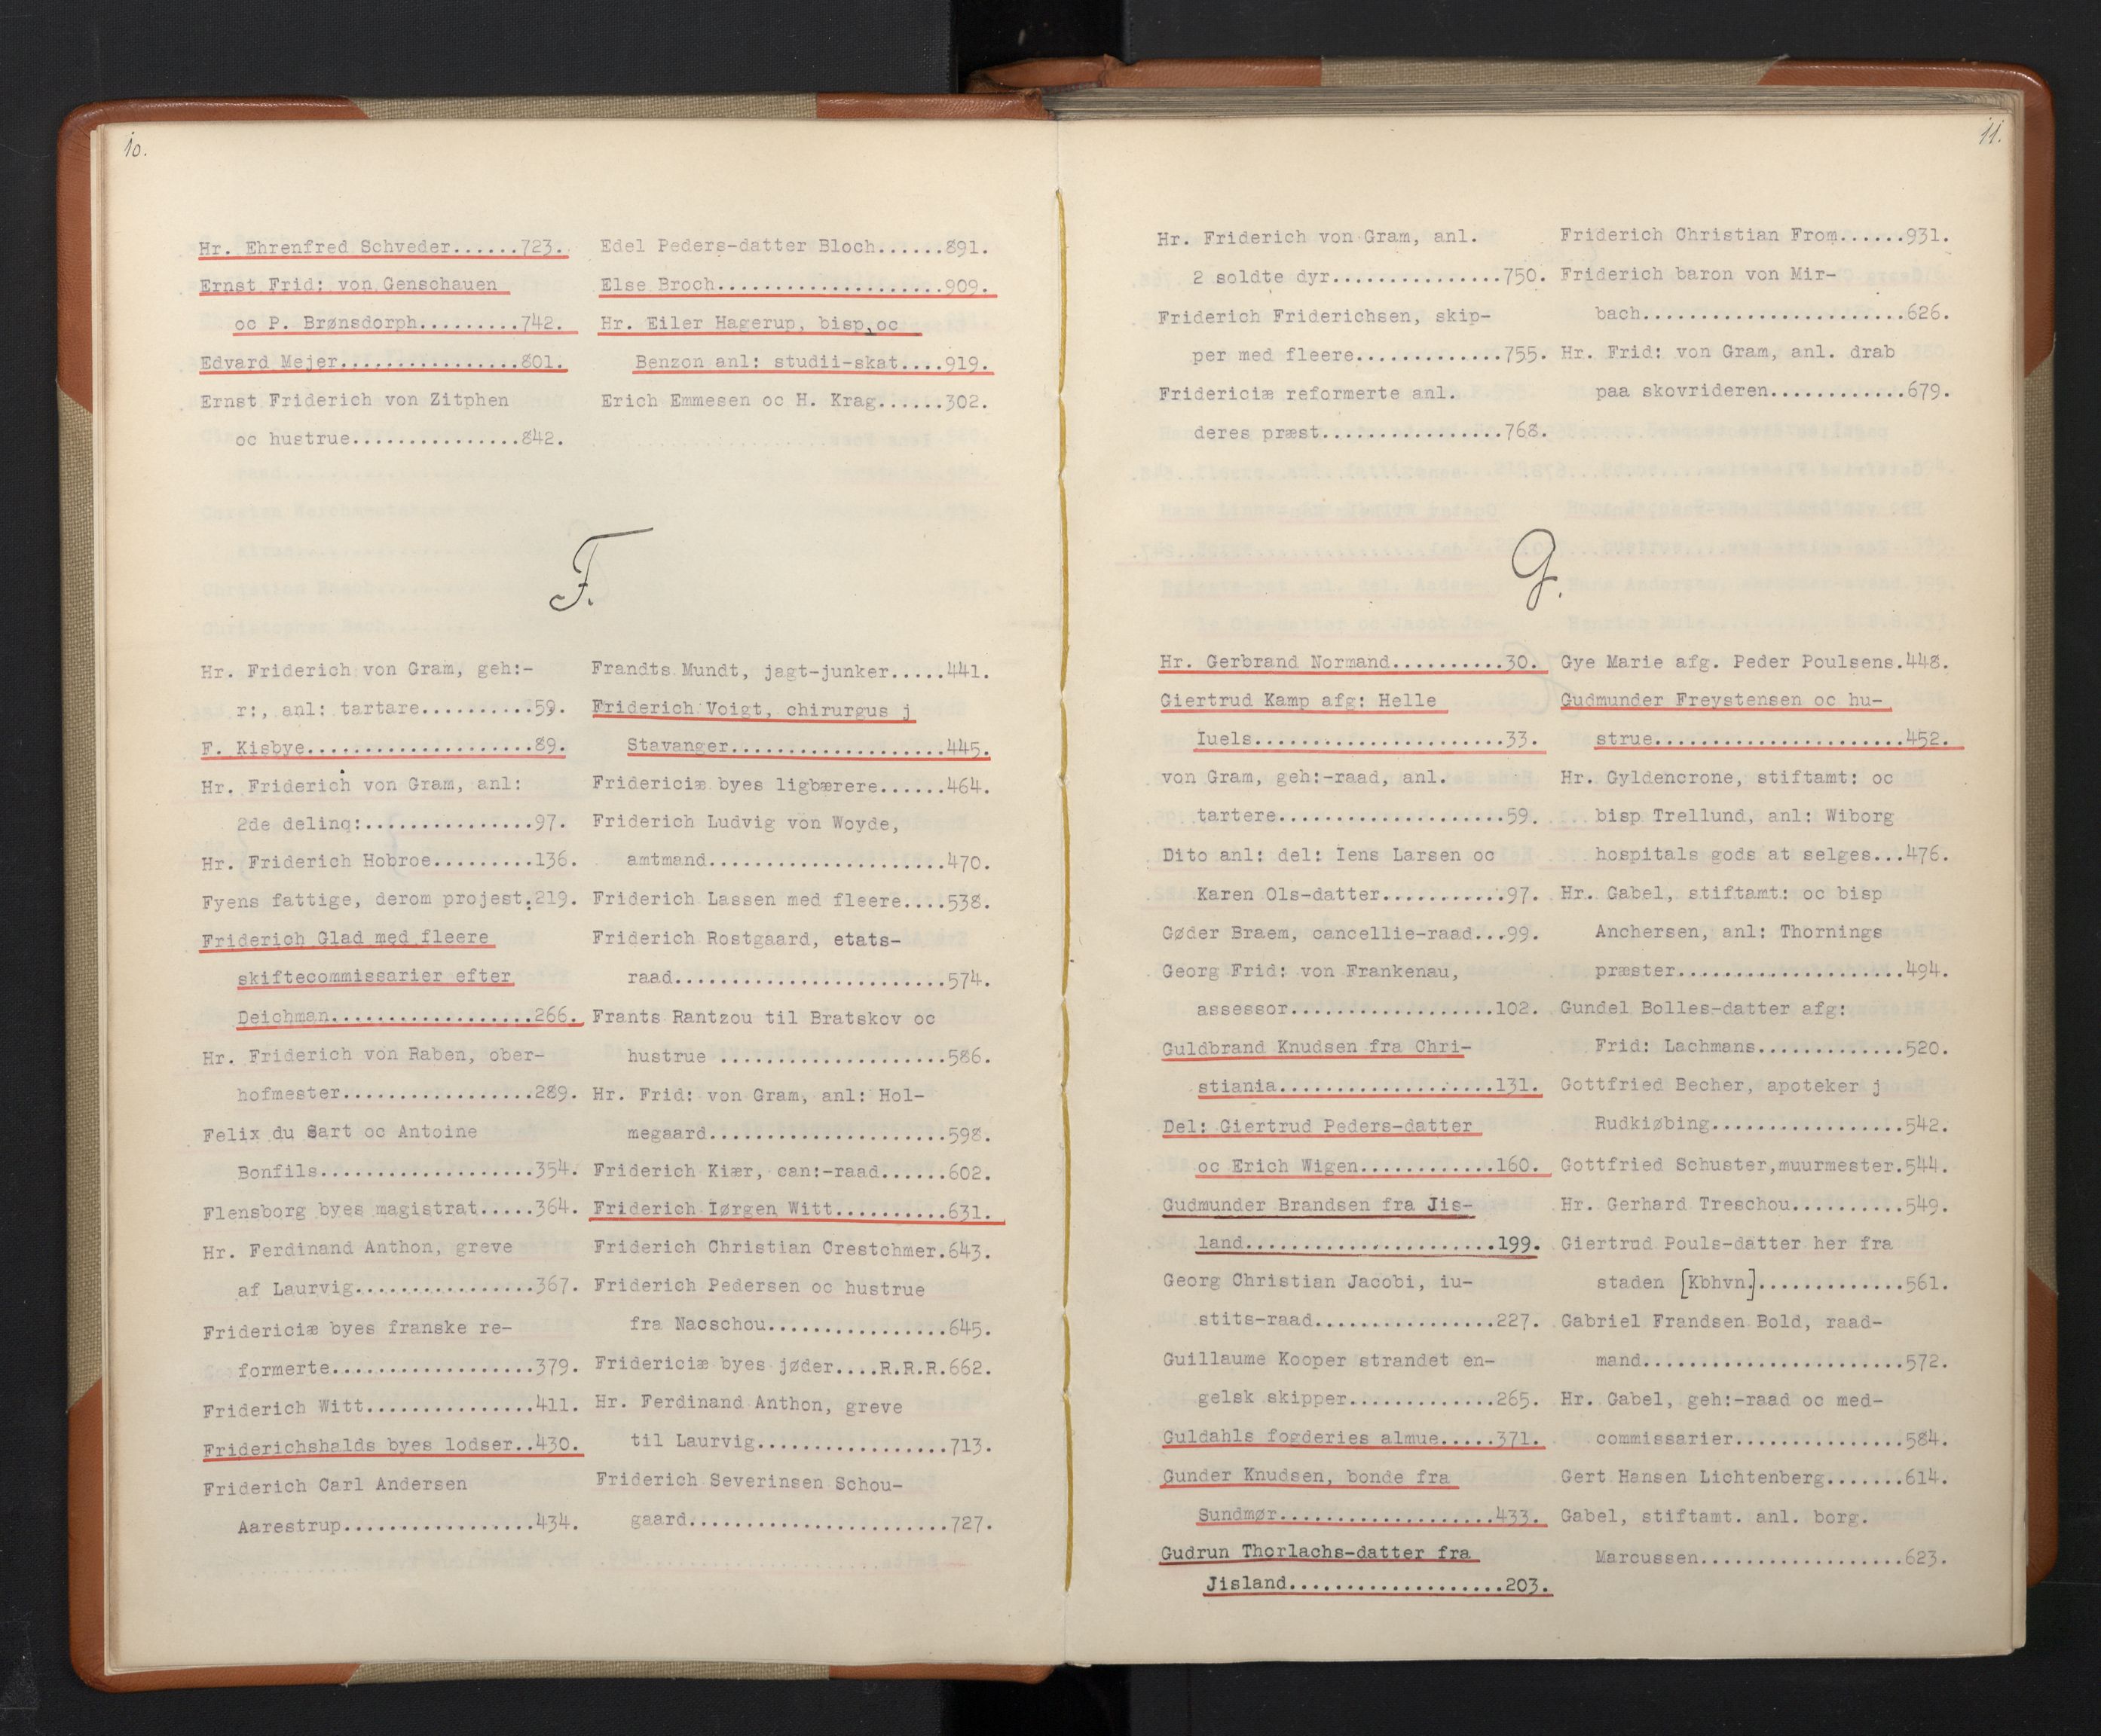 10.
Hr. Ehrenfred Schveder......723.
Ernst Frid: von Genschauen
oc P. Brønsdorph.........742.
Edvard Mejer................801.
Ernst Friderich von Zitphen
oc hustrue...............842.
Edel Peders-datter Bloch......891.
Else Broch....................909.
Hr. Eiler Hagerup, bisp, oc
Benzon anl: studii-skat....919.
Erich Emmesen oc H. Krag......302.
F.
Hr. Friderich von Gram, geh:-
r:, anl: tartare..........59.
F. Kisbye.....................89.
Hr. Friderich von Gram, anl:
2de delinq:...............97.
Hr. Friderich Hobroe.........136.
Fyens fattige, derom projest.:219.
Friderich Glad med fleere
skiftecommissarier efter
Deichman..................266.
Hr. Friderich von Raben, ober-
hofmester.................289.
Felix du Sart oc Antoine
Bonfils...................354.
Flensborg byes magistrat.....364.
Hr. Ferdinand Anthon, greve
af Laurvig................367.
Fridericiæ byes franske re-
formerte..................379.
Friderich Witt...............411.
Friderichshalds byes lodser..430.
Friderich Carl Andersen
Aarestrup.................434.
Frandts Mundt, jagt-junker.....441.
Friderich Voigt, chirurgus j
Stavanger...................445.
Fridericiæ byes ligbærere......464.
Friderich Ludvig von Woyde,
amtmand.....................470.
Friderich Lassen med fleere....538.
Friderich Rostgaard, etats-
raad........................574.
Frants Rantzou til Bratskov oc
hustrue ....................586.
Hr. Frid: von Gram, anl: Hol-
megaard.....................598.
Friderich Kiær, can:-raad......602.
Friderich Iørgen Witt..........631.
Friderich Christian Crestchmer.643.
Friderich Pedersen oc hustrue
fra Nacschou................645.
Fridericiæ byes jøder....R.R.R.662.
Hr. Ferdinand Anthon, greve
til Laurvig.................713.
Friderich Severinsen Schou-
gaard.......................727.
11.
Hr. Friderich von Gram, anl.
2 soldte dyr...............750.
Friderich Friderichsen, skip-
per med fleere.............755.
Fridericiæ reformerte anl.
deres præst................768.
Friderich Christian From......931.
Friderich baron von Mir-
bach.......................626.
Hr. Frid: von Gram, anl. drab
paa skovrideren............679.
G.
Hr. Gerbrand Normand..........30.
Giertrud Kamp afg: Helle
Iuels......................33.
von Gram, geh:-raad, anl.
tartere....................59.
Dito anl: del: Iens Larsen oc
Karen Ols-datter...........97.
Gøder Braem, cancellie-raad...99.
Georg Frid: von Frankenau,
assessor..................102.
Guldbrand Knudsen fra Chri-
stiania...................131.
Del: Giertrud Peders-datter
oc Erich Wigen............160.
Gudmunder Brandsen fra Jis-
land......................199.
Georg Christian Jacobi, iu-
stits-raad................227.
Guillaume Kooper strandet en-
gelsk skipper.............265.
Guldahls fogderies almue.....371.
Gunder Knudsen, bonde fra
Sundmør...................433.
Gudrun Thorlachs-datter fra
Jisland...................203.
Gye Marie afg. Peder Poulsens.448.
Gudmunder Freystensen oc hu-
strue......................452.
Hr. Gyldencrone, stiftamt: oc
bisp Trellund, anl: Wiborg
hospitals gods at selges...476.
Hr. Gabel, stiftamt: oc bisp
Anchersen, anl: Thornings
præster....................494.
Gundel Bolles-datter afg:
Frid: Lachmans.............520.
Gottfried Becher, apoteker j
Rudkiøbing.................542.
Gottfried Schuster,muurmester.544.
Hr. Gerhard Treschou..........549.
Giertrud Pouls-datter her fra
staden [Kbhvn.].............561.
Gabriel Frandsen Bold, raad-
mand.......................572.
Hr. Gabel, geh:-raad oc med-
commissarier...............584.
Gert Hansen Lichtenberg.......614.
Gabel, stiftamt. anl. borg.
Marcussen..................623.